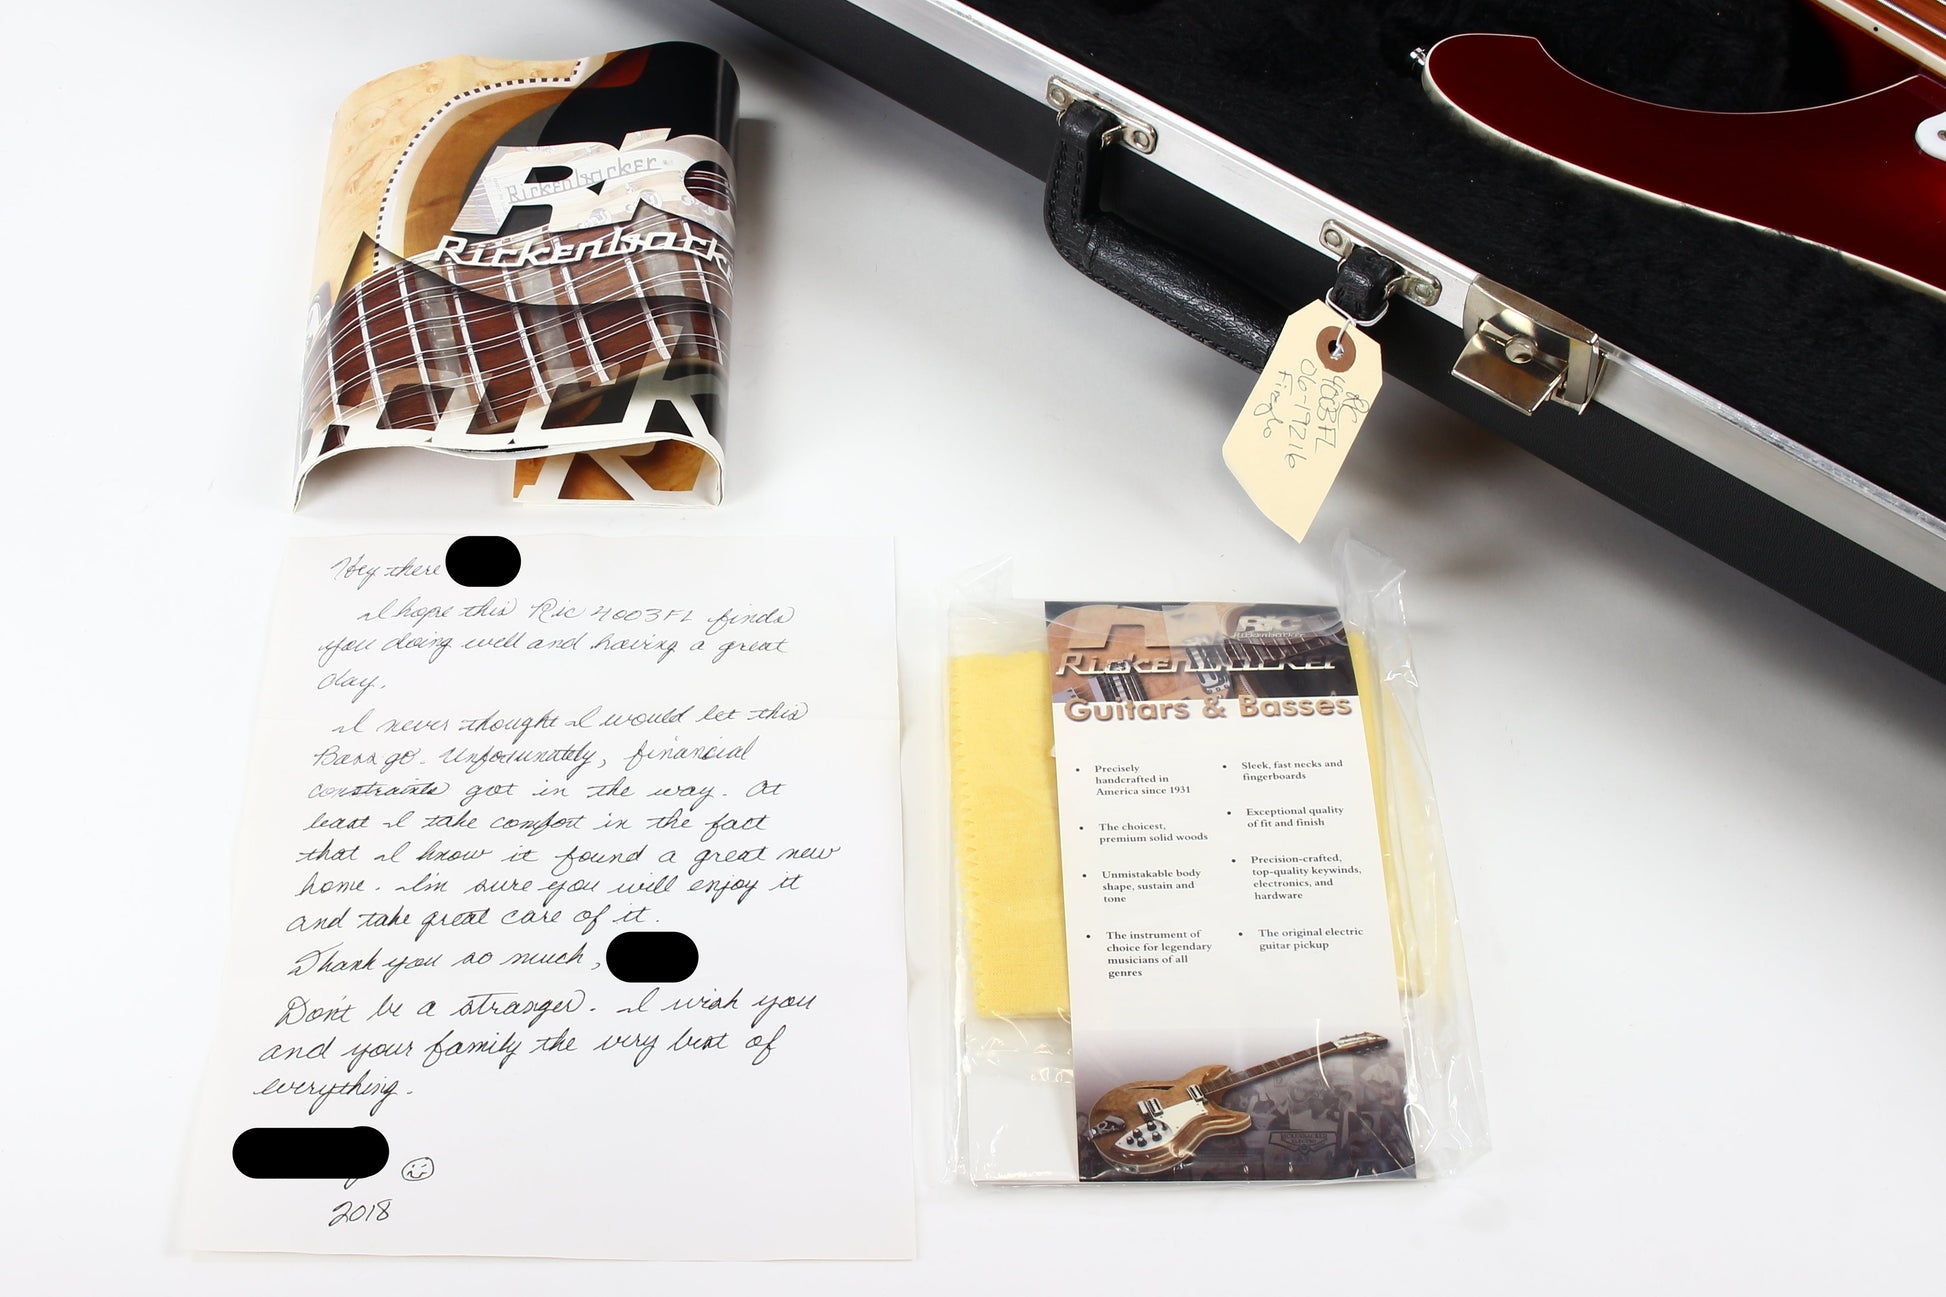 Ric
Rickenbacker
Rickenbacke
RIC
4003FL
06-19216
Fireglo
Hey there
I hope this Ric 4003FL finds
you doing well and having a great
day.
I never thought I would let this
Bass go. Unfortunately, financial
constraints got in the way. At
least I take comfort in the fact
that I know it found a great new
home. I'm sure you will enjoy it
and take great care of it.
Thank you so much,
Don't be a stranger. I wish you
and your family the very best of
everything.
2018
RIC
Rickenbacker
Rickenbacker
Guitars & Basses
• Precisely
handcrafted in
America since 1931
• The choicest,
premium solid woods
• Unmistakable body
shape, sustain and
tone
• The instrument of
choice for legendary
musicians of all
genres
• Sleek, fast necks and
fingerboards
• Exceptional quality
of fit and finish
• Precision-crafted,
top-quality keywinds,
electronics, and
hardware
• The original electric
guitar pickup